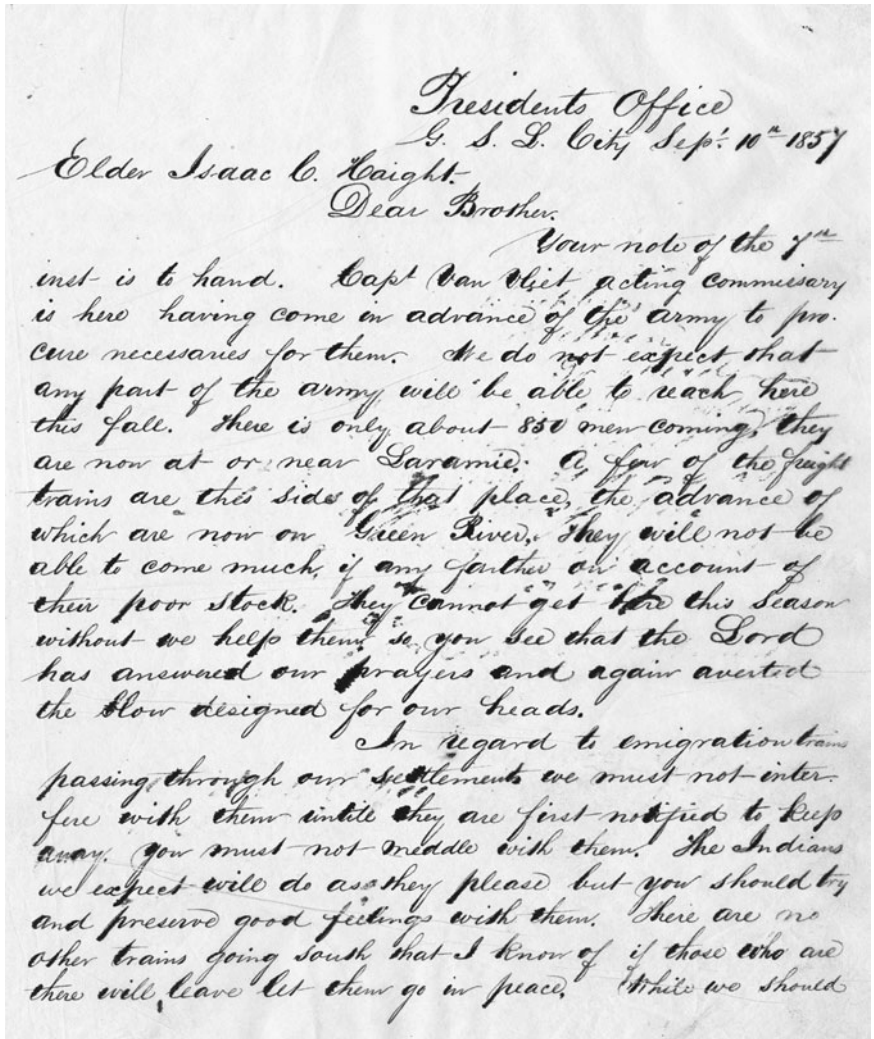 Presidents Office
G. S. L. City Sept. 10th 1857
Elder Isaac C. Haight.
Dear Brother.
Your note of the 7th
inst is to hand. Capt Van Vliet acting commissary
is here having come in advance of the army to pro-
cure necessaries for them. We do not expect that
any part of the army will be able to reach here
this fall. There is only about 850 men coming, they
are now at or near Laramie. A few of the freight
trains are this side of that place, the advance of
which are now on Green River. They will not be
able to come much, if any farther on account of
their poor stock. They cannot get here this season
without we help them, so you see that the Lord
has answered our prayers and again averted
the blow designed for our heads.
In regard to emigration trains
passing through our settlements we must not inter-
fere with them untill they are first notified to keep
away. you must not meddle with them. The Indians
we expect will do as they please but you should try
and preserve good feelings with them. There are no
other trains going south that I know of if those who are
there will leave let them go in peace. While we should